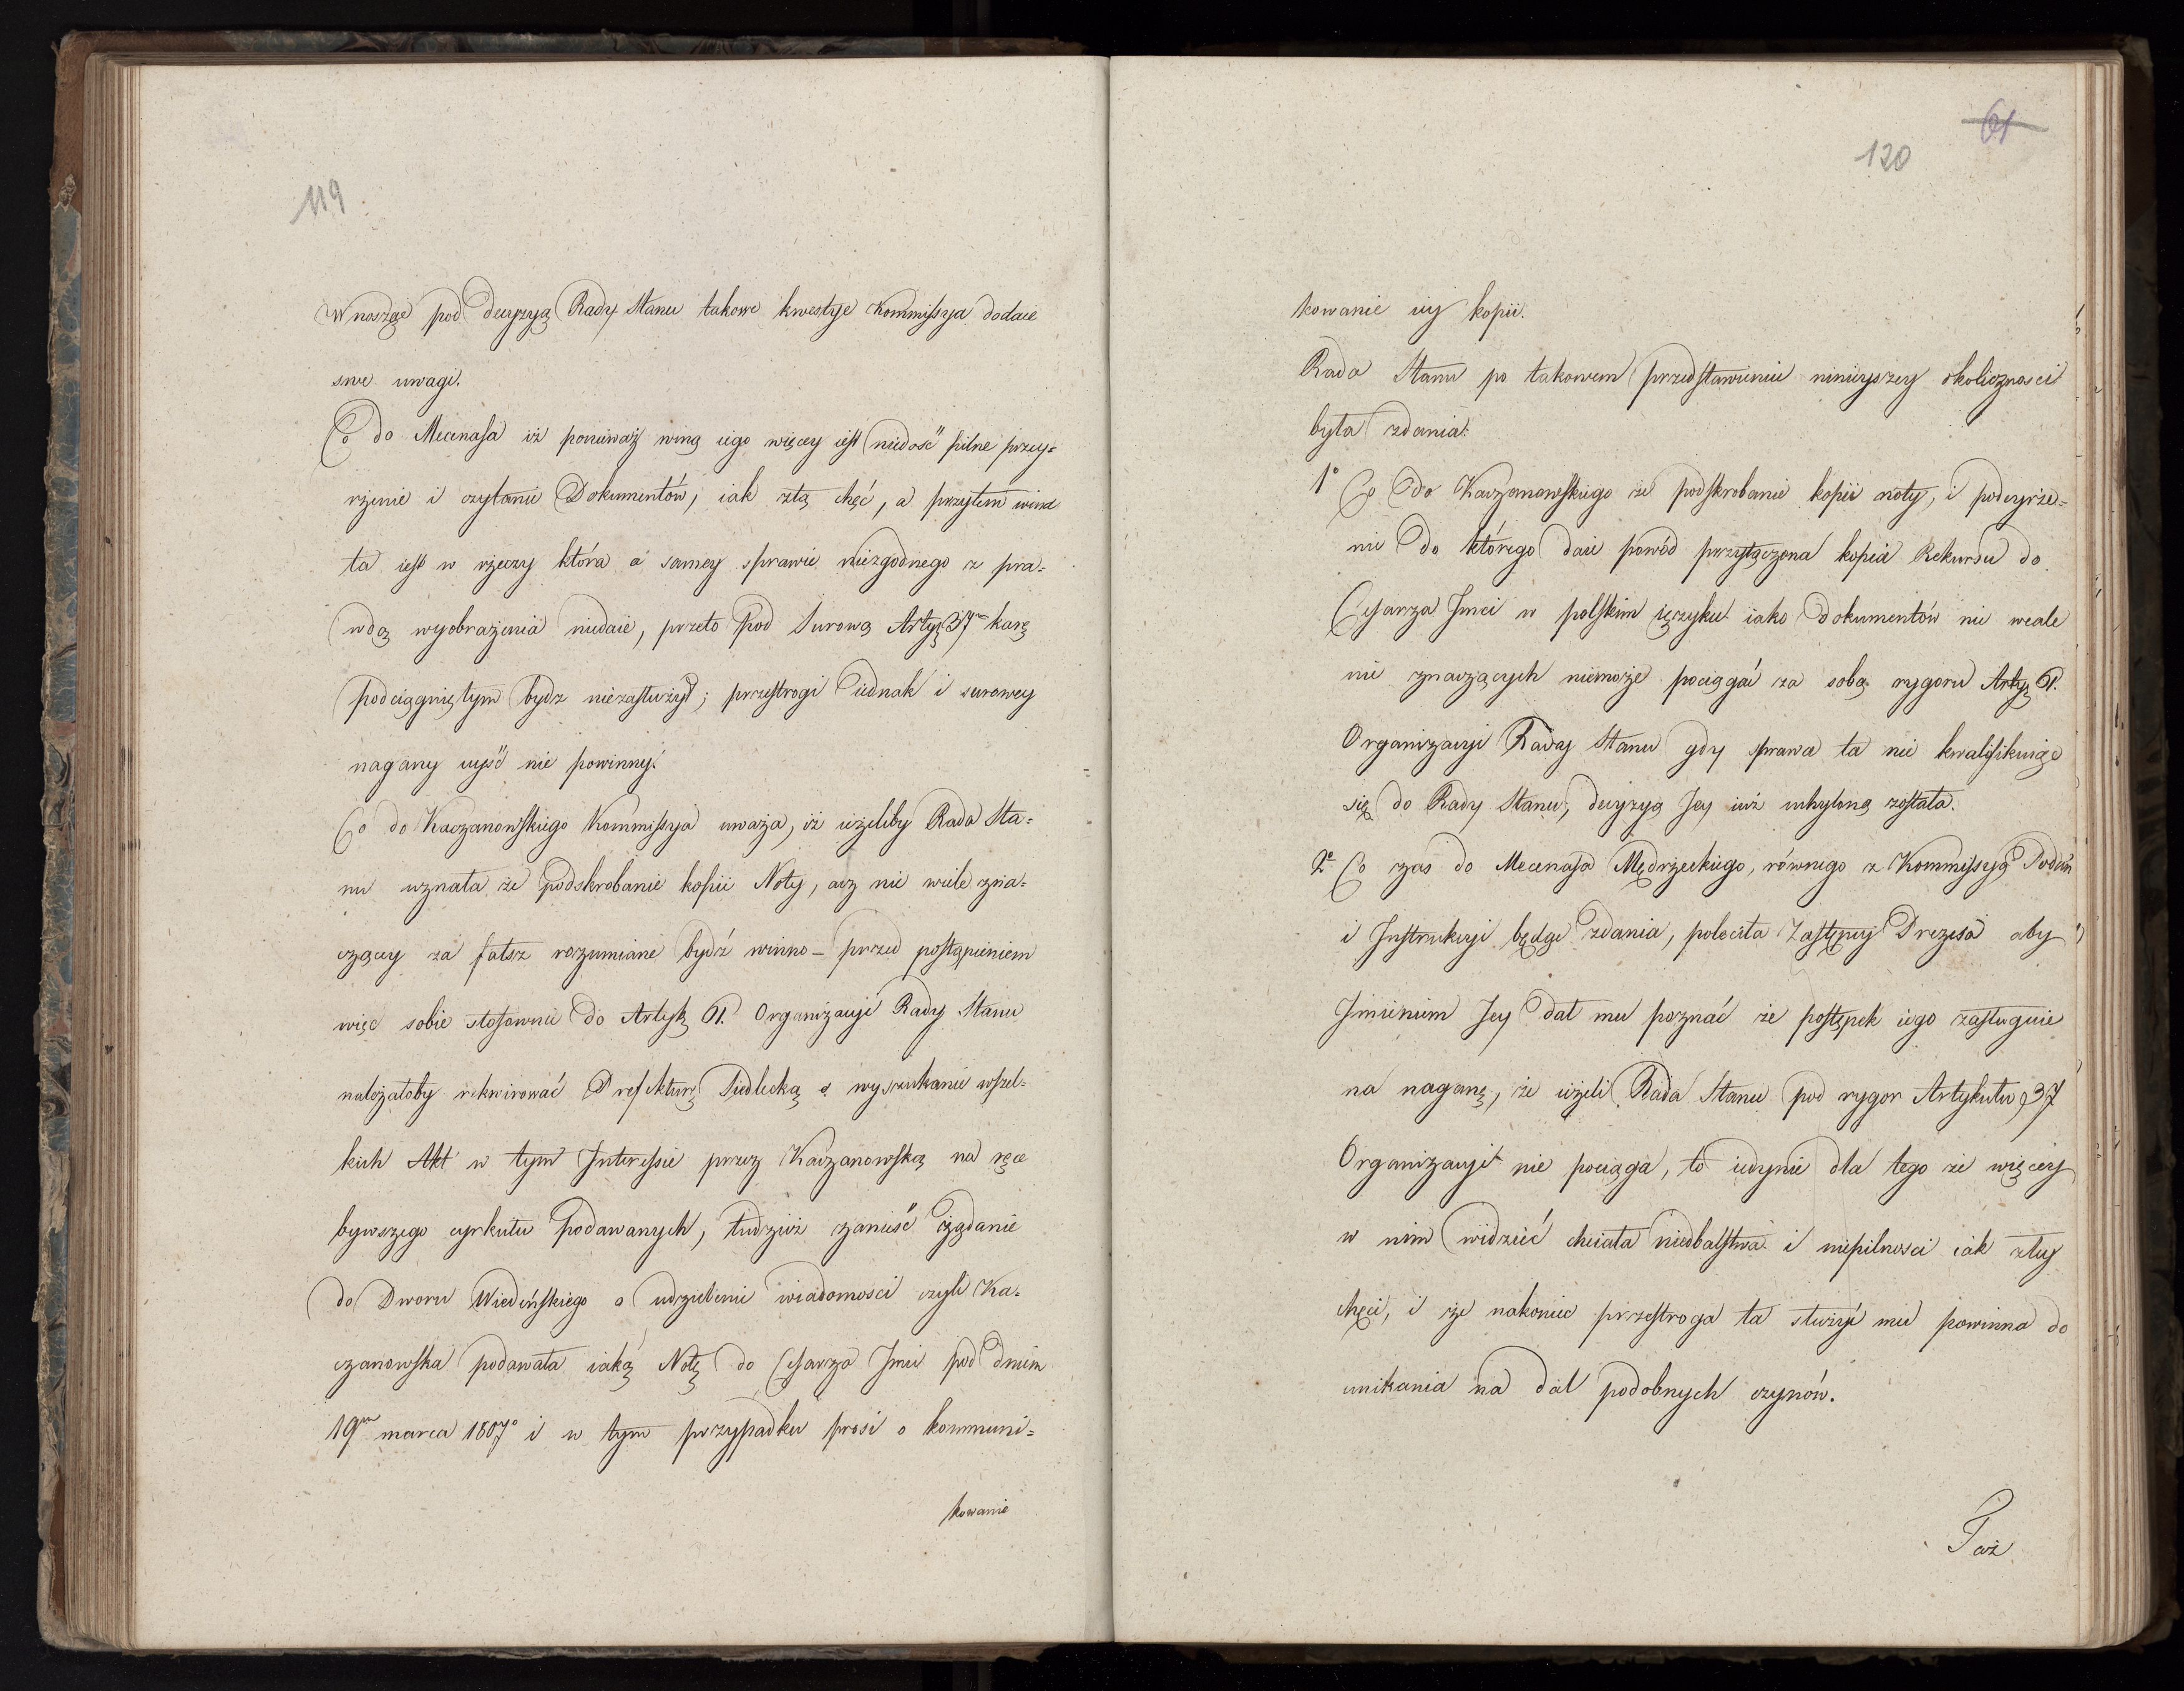 119
Wnosząc pod decyzyą Rady Stanu takowe kwestye Kommissya dodaie
swe uwagi.
Co do Mecenasa iż ponieważ winą iego więcey iest niedość pilne przey=
rzenie i czytanie Dokumentów, iak złą chęć, a przytem wina
ta iest w rzeczy która o samey sprawie niezgodnego z pra=
wdą wyobrażenia niedaie, przeto pod surową Artyę 37m karę
podciągniętym bydz niezasłużył; przestrogi iednak i surowey
nagany uyść nie powinny.
Co do Kaczanowskiego Kommissya uważa, iż ieżeliby Rada Sta=
nu uznała że podskrobanie kopii Noty, acz nie wiele zna=
czącey za fałsz rozumiane bydź winno – przed postąpieniem
więc sobie stosownie do Artykę 61. Organizacyi Rady Stanu
należałoby rekwirować Prefekturę Siedlecką o wyszukanie wszel=
kich Akt w tym Interessie przez Kaczanowską na ręce
bywszego cyrkułu podawanych, tudzież zanieść żądanie
do Dworu Wiedeńskiego o udzielenie wiadomosci czyli Ka=
czanowska podawała iaką Notę do Cesarza Jmci pod dniem
19m marca 1807o i w tym przypadku prosi o kommuni=
kowanie
61
120
kowanie iey kopii.
Rada Stanu po takowem przedstawieniu ninieyszey okolicznosci
była zdania:
1o Co do Kaczanowskiego że podskrobanie kopii noty, i podeyrze=
nie do którego daie powód przyłączona kopia Rekursu do
Cesarza Jmci w polskim ięzyku iako dokumentów nic wcale
nie znaczących niemoże pociągać za sobą rygoru Artyę 61.
Organizacyi Rady Stanu gdy sprawa ta nie kwalifikuiąc
się do Rady Stanu, decyzyą Jey iuż uchyloną została.
2o Co zaś do Mecenasa Mędrzeckiego, równego z Kommissyą Podań
i Instrukcyi będąc zdania, poleciła Zastępcy Prezesa aby
Jmieniem Jey dał mu poznać że postępek iego zasługuie
na naganę, że ieżeli Rada Stanu pod rygor Artykułu 37
Organizacyi nie pociąga, to iedynie dla tego że więcey
w nim widzieć chciała niedbalstwa i niepilnosci iak złey
chęci, i że nakoniec przestroga ta służyć mu powinna do
unikania na dal podobnych czynów.
Taż